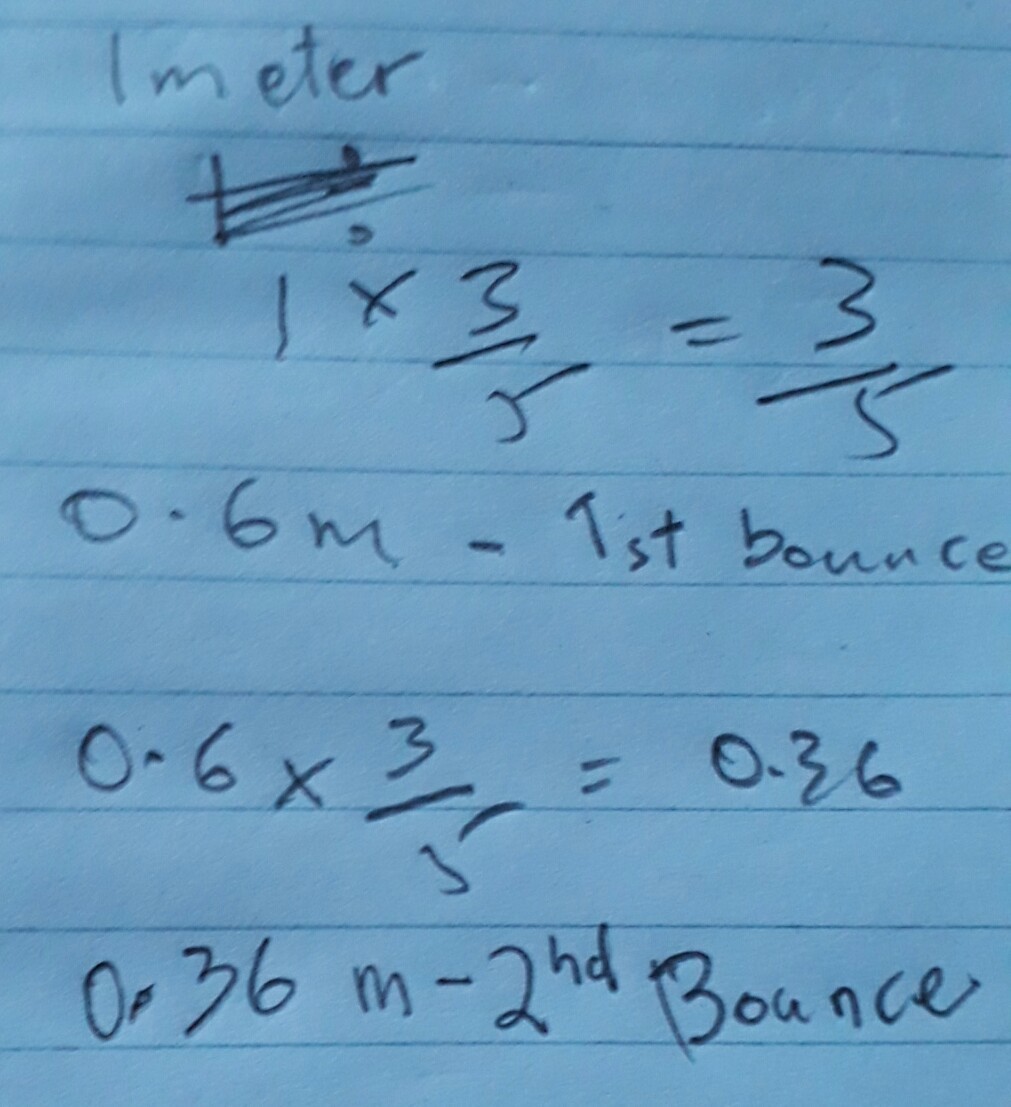 1 meter
1 × 3/5 = 3/5
0.6 m - 1st bounce
0.6 × 3/5 = 0.36
0.36 m - 2nd Bounce